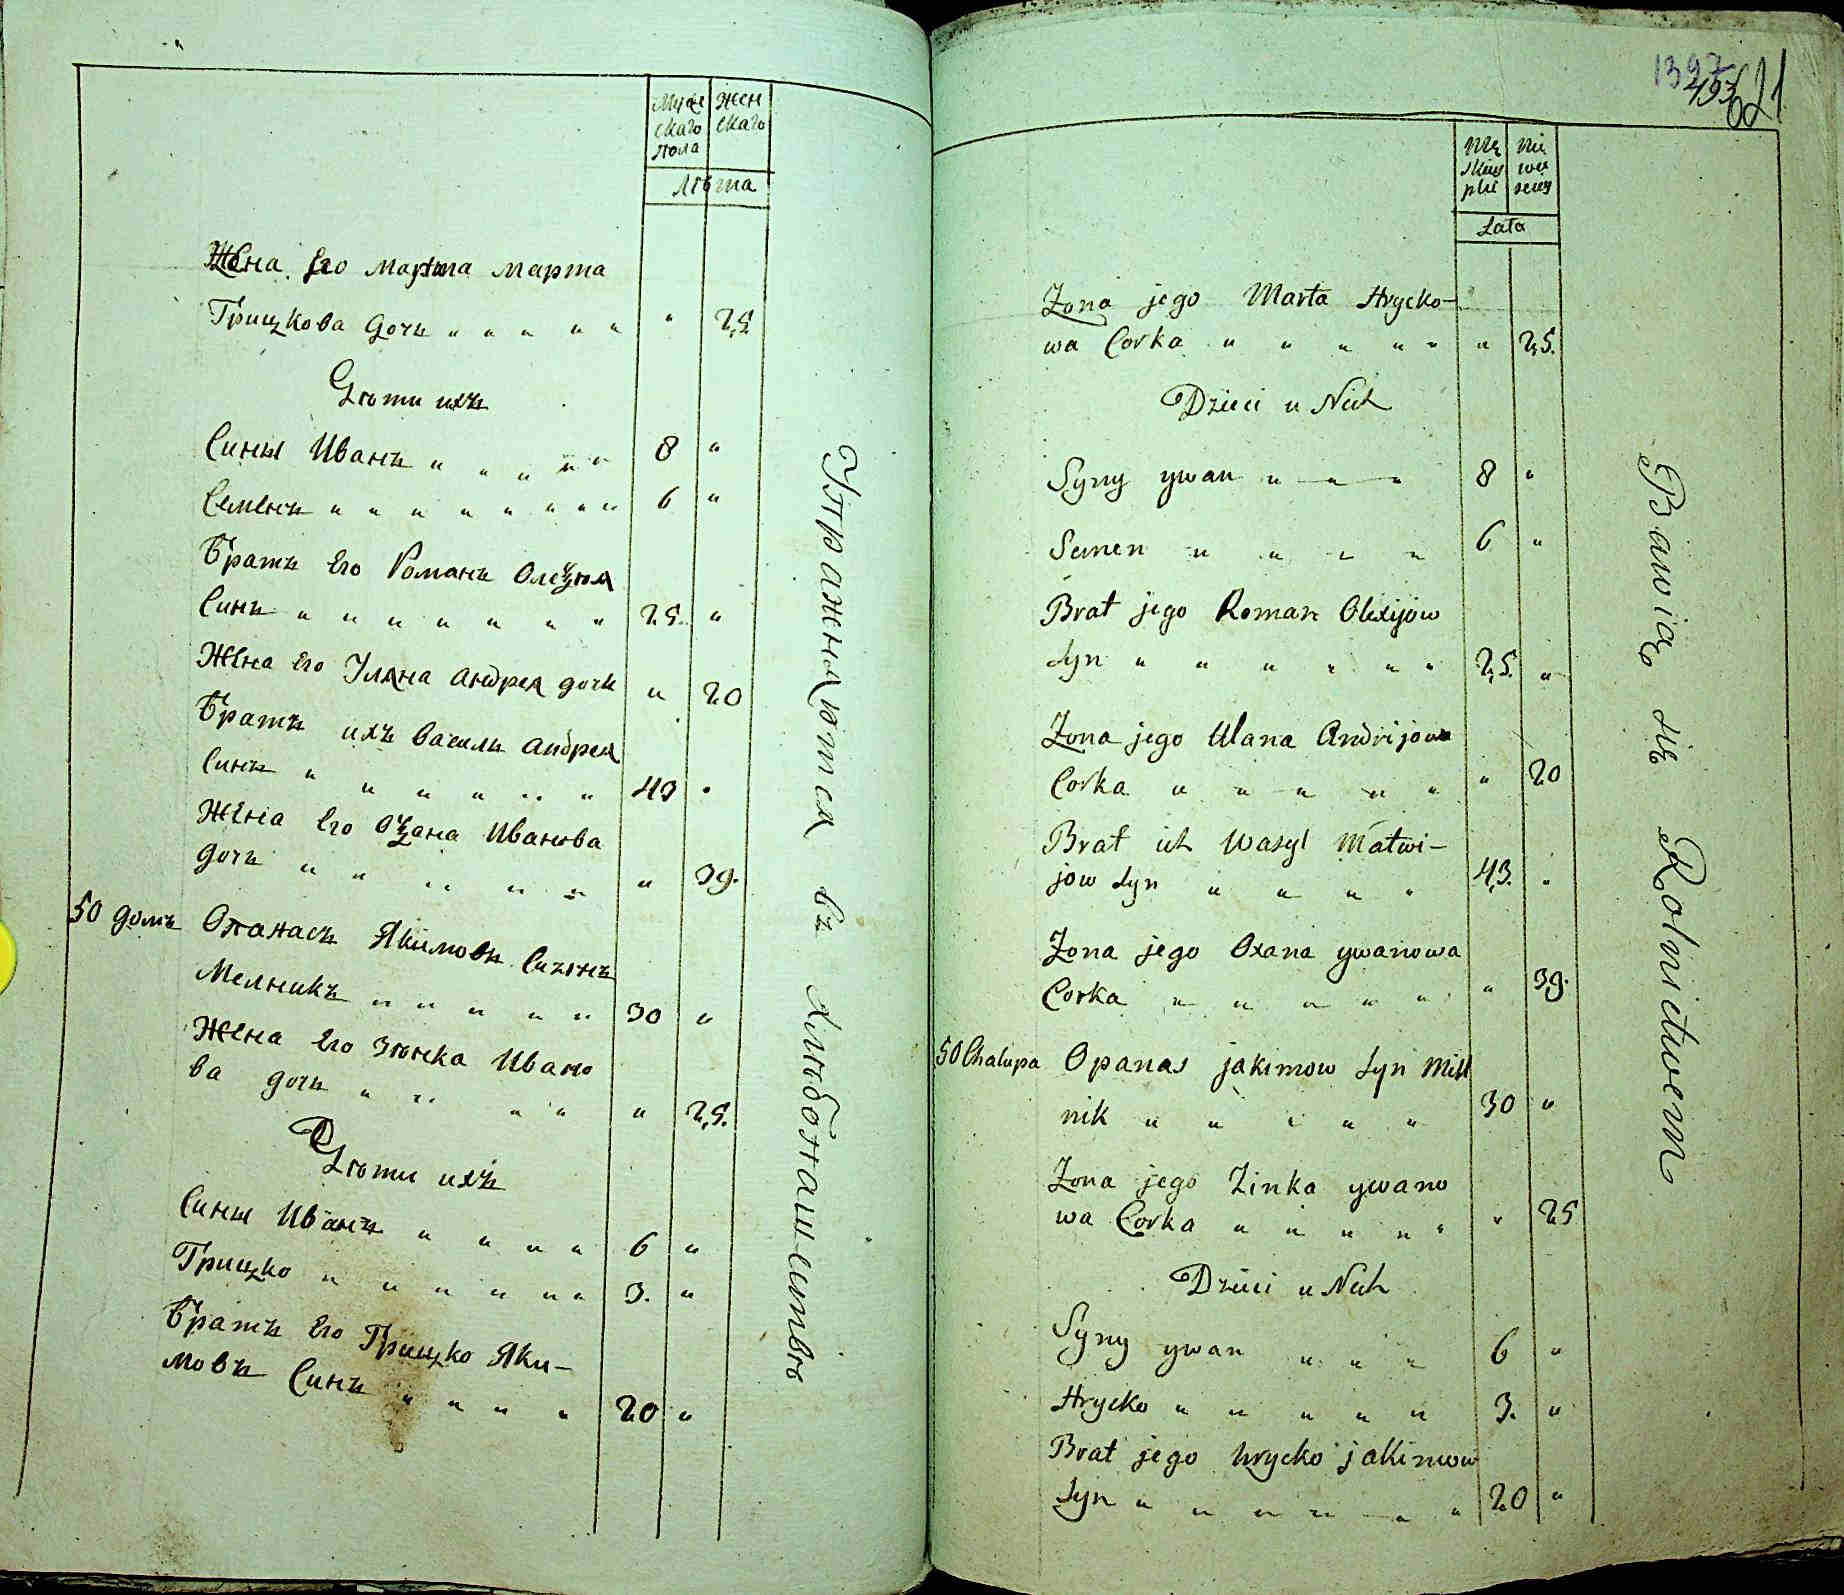 Муже
скаго
пола
жен
скаго
Лѣта
Жена Его Марта Марта
Грицкова дочь " " " " " " 25
Дѣти ихъ
Сины Иванъ " " " " " 8 "
Семенъ " " " " " " " " " 6 "
Братъ Его Романъ Олеѯѣя
Синъ " " " " " " " 25. "
Жена Его Уляна Андрея дочь " 20
Братъ ихъ Василь Андрея
Синъ " " " " " " 43 "
Жена Его Оѯана Иванова
дочь " " " " " " 39.
50 домъ Опанасъ Якимовъ Синъ
Мелникъ " " " " " 30 "
Жена Его Зѣнка Ивано
ва дочь " " " " " 25.
Дѣти ихъ
Сины Иванъ " " " " 6 "
Грицко " " " " " " 3. "
Братъ Его Грицко Яки-
мовъ Синъ " " " " 20 "
Упражняются въ хлѣбопашествѣ
1397
493
621
Mę
skiey
płci
Nie
wie
sciey
Lata
Zona jego Marta Hrycko-
wa Corka " " " " " " 25.
Dzieci u Nich
Syny ywan " " " 8 "
Semen " " " " 6 "
Brat jego Roman Olexijow
Syn " " " " " " 25. "
Zona jego Ulana Andrijowa
Corka " " " " " " 20
Brat ich Wasyl Matwi-
jow Syn " " " " 43. "
Zona jego Oxana ywanowa
Corka " " " " " " 39.
50 Chalupa Opanas jakimow Syn Mill
nik " " " " " 30 "
Zona jego Zinka ywano
wa Corka " " " " " " 25
Dzieci u Nich
Syny ywan " " " 6 "
Hrycko " " " " " 3. "
Brat jego hrycko jakimow
Syn " " " " " " 20 "
Bawią się Rolnictwem